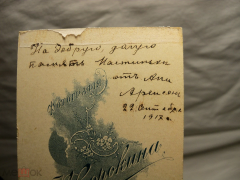 На добрую, долгую
память Настеньки
отъ Ани
22 Октября
1917 г.
Фотографія